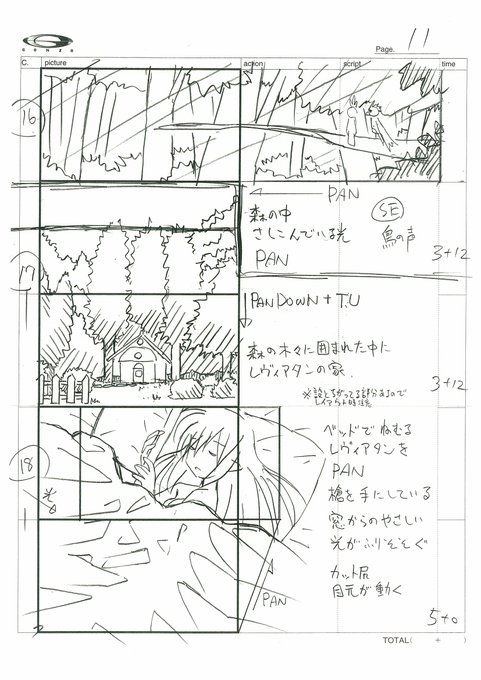 GONZO
Page. 11
C. picture action script time
16
← PAN
森の中
さしこんでいる光
PAN
SE
鳥の声
3+12
17
PAN DOWN + T.U
森の木々に囲まれた中に
レヴィアタンの家
3+12
18
光
ベッドでねむる
レヴィアタンを
PAN
槍を手にしている
窓からのやさしい
光がふりそそぐ
カット尻
目元が動く
PAN
5+0
TOTAL( + )